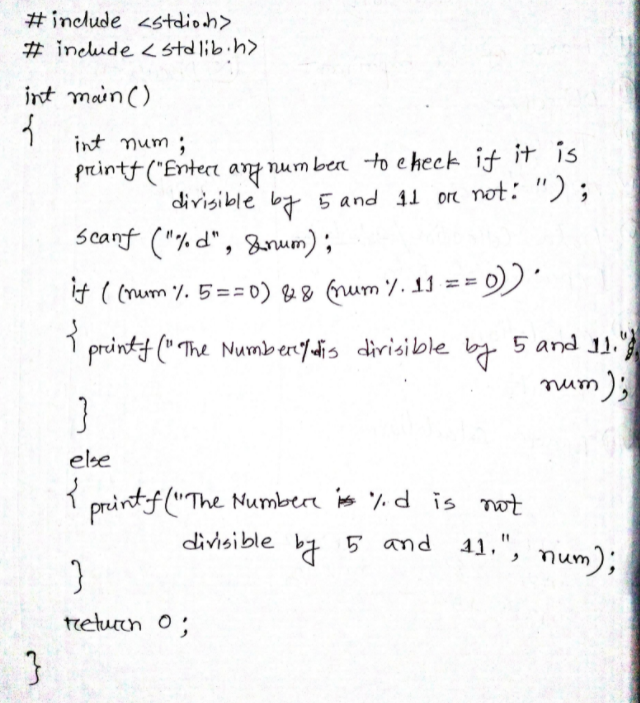 # include <stdio.h>
# include < stdlib.h>
int main()
{
int num ;
printf("Enter any number to check if it is
divisible by 5 and 11 or not: ") ;
scanf ("%d", &num);
if ( (num % 5==0) && (num % 11 == 0))
{ printf (" The Number %d is divisible by 5 and 11.",
num);
}
else
{ printf("The Number %d is not
divisible by 5 and 11.", num);
}
return 0 ;
}